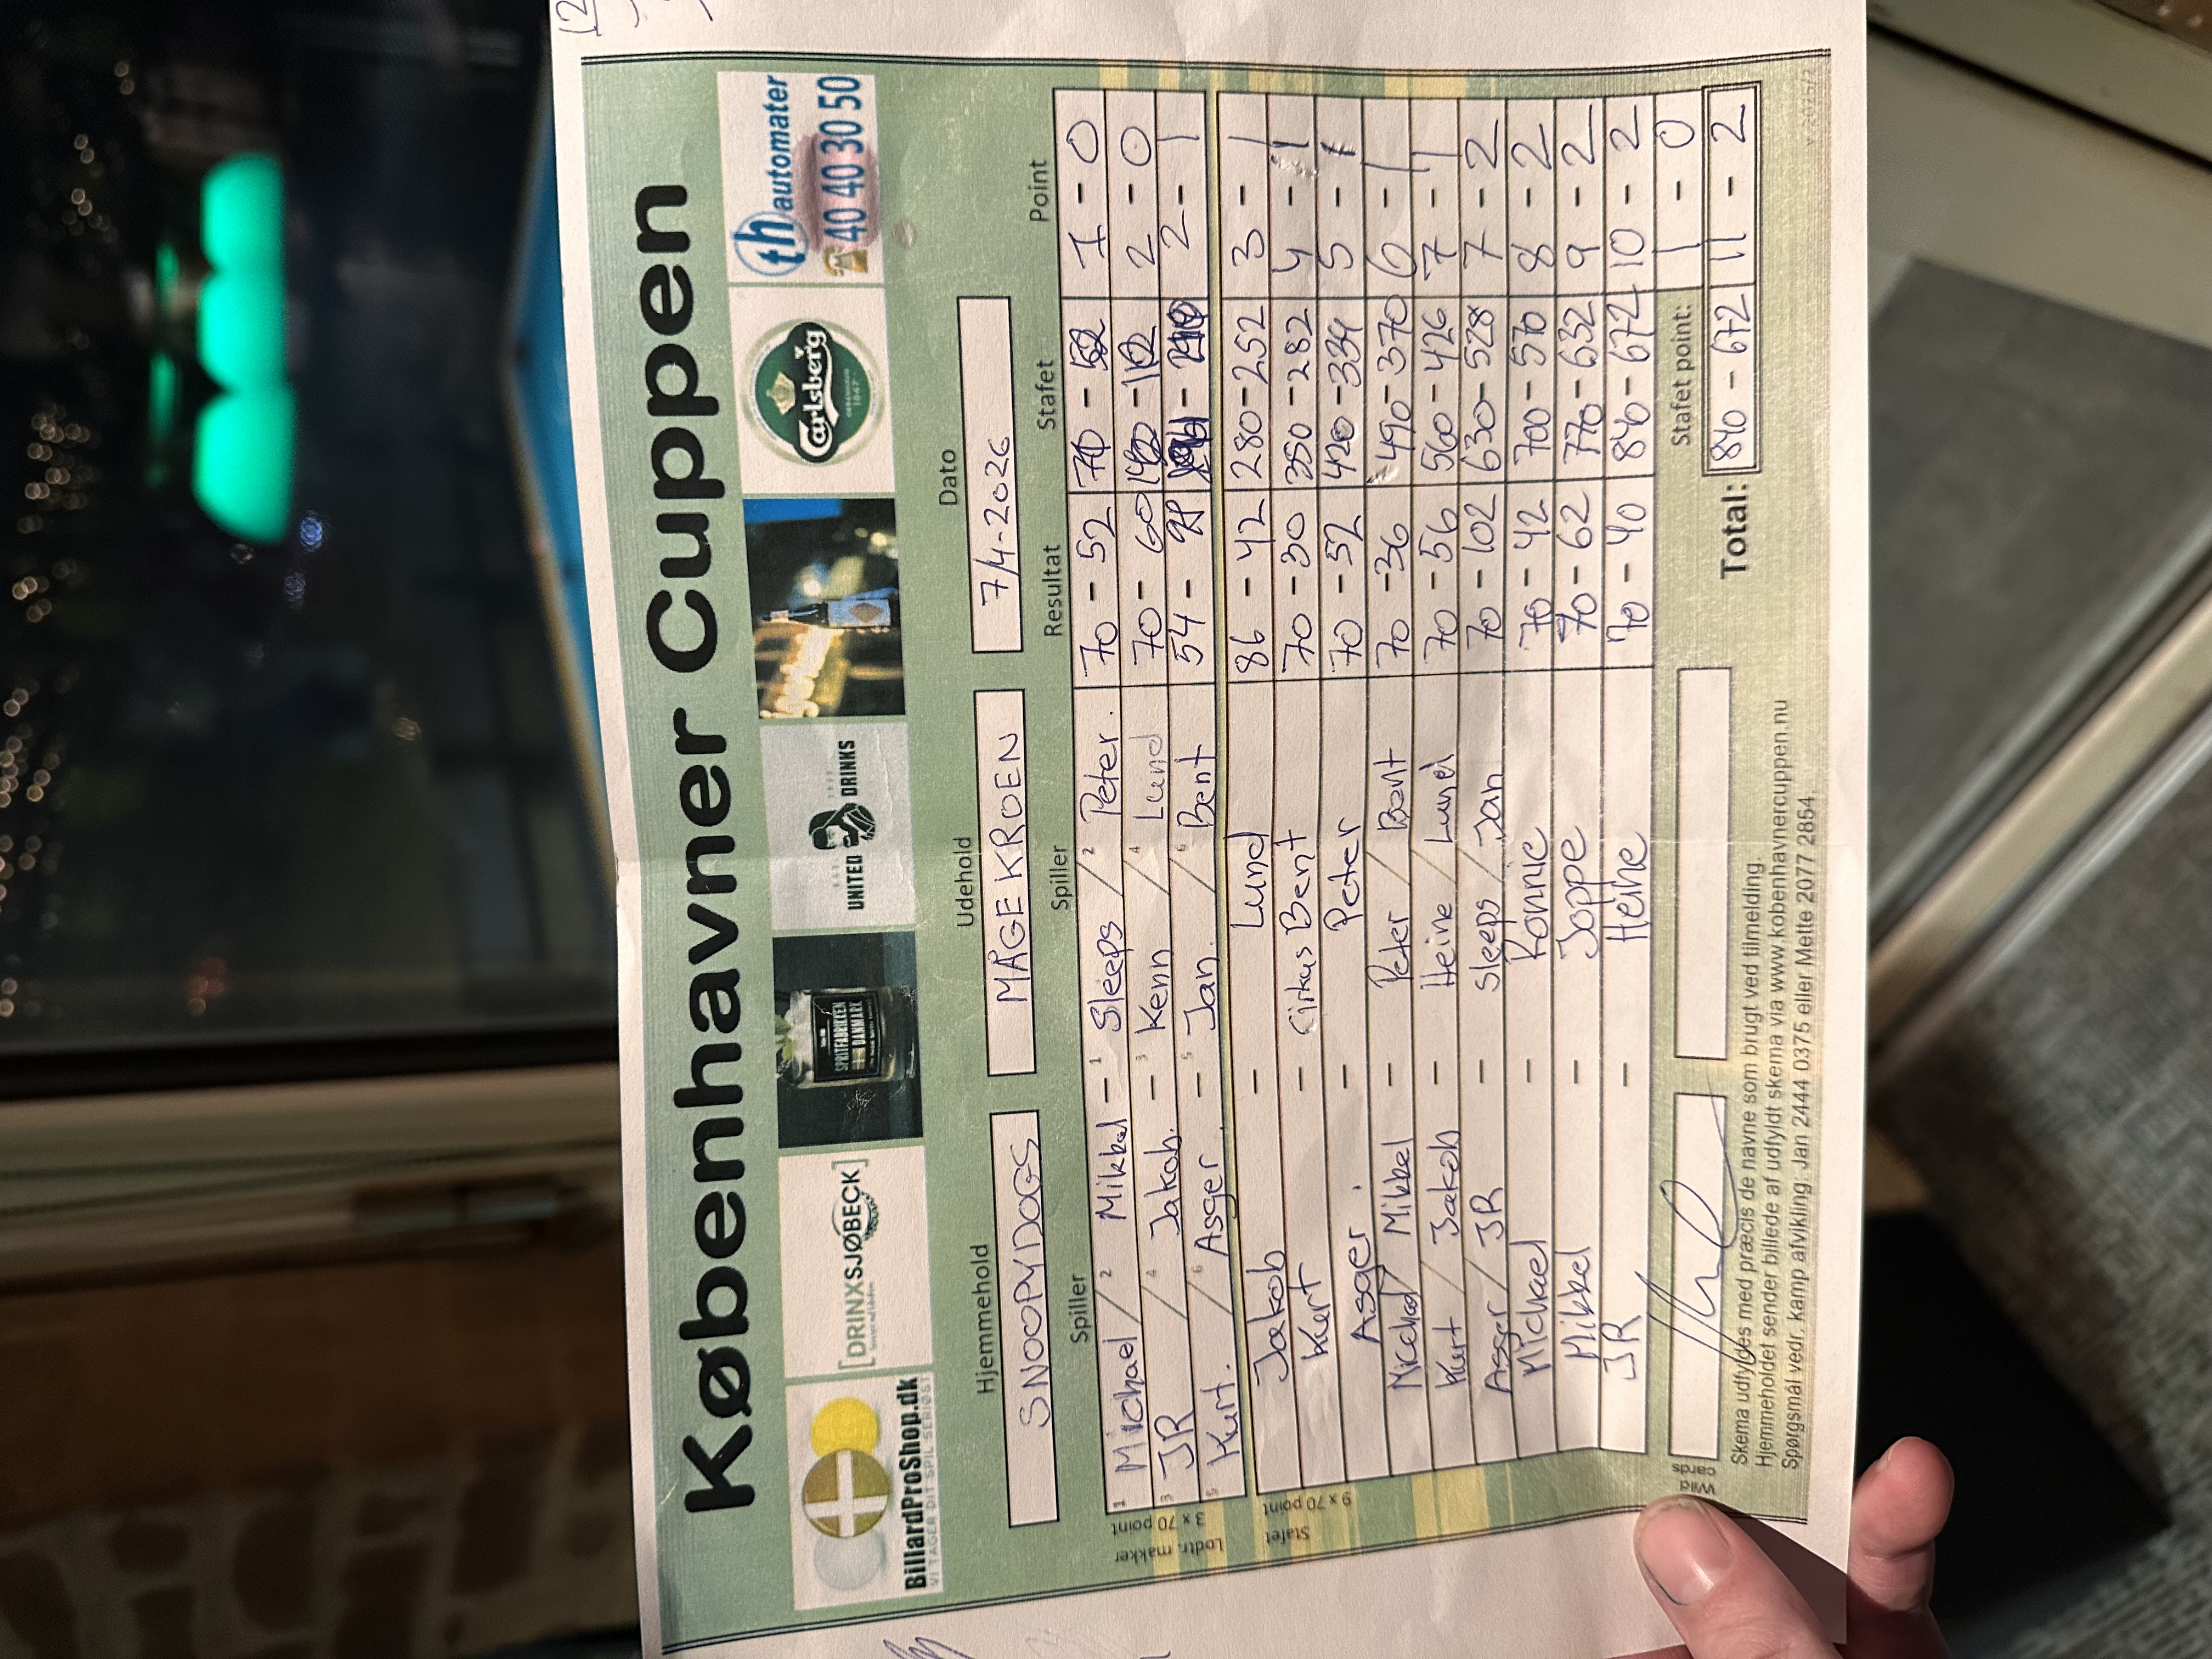 Københavner Cuppen
BillardProShop.dk
VI TAGER DIT SPIL SERIØST
[DRINXSJØBECK]
SPRITFABRIKKEN
DANMARK
UNITED DRINKS
Carlsberg
th automater
40 40 30 50
Hjemmehold Udehold Dato
SNOOPYDOGS MÅGEKROEN 7/4-2026
Spiller Spiller Resultat Stafet Point
Lodtr. makker
3 x 70 point
1 Michael / 2 Mikkel - 1 Sleeps / 2 Peter. 70 - 52 70 - 52 1 - 0
3 JR / 4 Jakob. - 3 Kenn / 4 Lund 70 - 60 140 - 112 2 - 0
5 Kurt. / 6 Asger. - 5 Jan. / 6 Bent 54 - 98 - 210 2 - 1
Stafet
9 x 70 point
Jakob - Lund 86 - 42 280 - 252 3 - 1
Kurt - Cirkus Bent 70 - 30 350 - 282 4 - 1
Asger. - Peter 70 - 52 420 - 334 5 - 1
Michael / Mikkel - Peter / Bent 70 - 36 490 - 370 6 - 1
Kurt / Jakob - Heine / Lund 70 - 56 560 - 426 7 - 1
Asger / JR - Sleeps / Jan 70 - 102 630 - 528 7 - 2
Michael - Ronnie 70 - 42 700 - 570 8 - 2
Mikkel - Joppe 70 - 62 770 - 632 9 - 2
JR - Heine 70 - 40 840 - 672 10 - 2
Wild cards Stafet point: 1 - 0
Total: 840 - 672 11 - 2
Skema udfyldes med præcis de navne som brugt ved tilmelding.
Hjemmeholdet sender billede af udfyldt skema via www.kobenhavnercuppen.nu
Spørgsmål vedr. kamp afvikling: Jan 2444 0375 eller Mette 2077 2854.